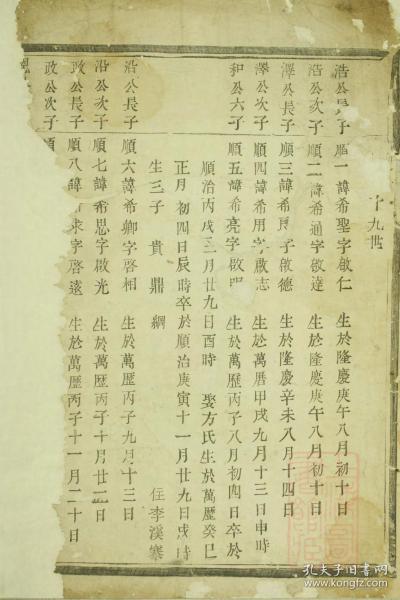 十九世
浩公長子 順一諱希聖字啟仁 生於隆慶庚午八月初十日
浩公次子 順二諱希通字啟達 生於隆慶庚午八月初十日
澤公長子 順三諱希 子啟德 生於隆慶辛未八月十四日
澤公次子 順四諱希用字啟志 生於萬曆甲戌九月十三日申時
和公六子 順五諱希亮字啟明 生於萬歷丙子八月初四日卒於
順治丙戌三月廿九日酉時 娶方氏生於萬歷癸巳
正月初四日辰時卒於順治庚寅十一月廿九日戌時
生三子 貴 鼎 綱 住李溪寨
沿公長子 順六諱希卿字啓相 生於萬歷丙子九月十三日
沿公次子 順七諱希思字啟光 生於萬歷丙子十月廿二日
政公長子 順八諱 求字啓遠 生於萬歷丙子十一月二十日
政公次子 順
孔夫子旧书网
www.kongfz.com